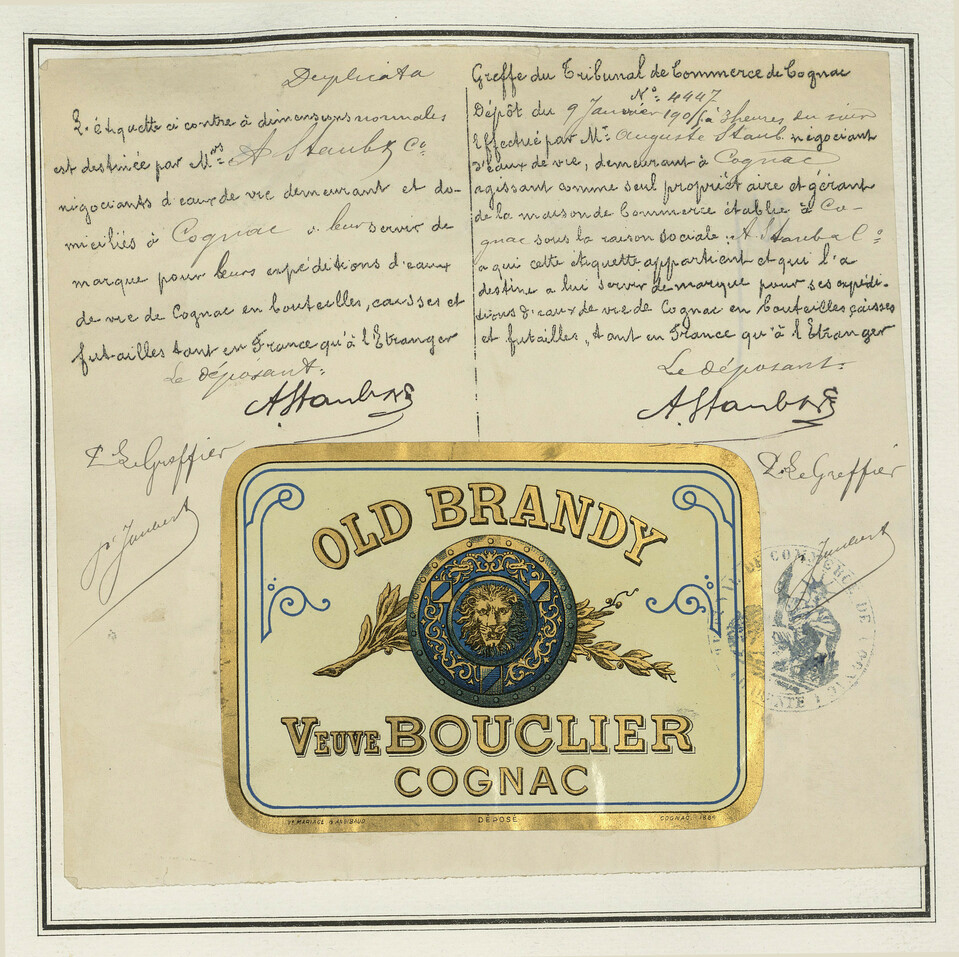 Duplicata
L'étiquette ci contre à dimensions normales
est destinée par Mrs A Staub & Co
négociants d'eaux de vie demeurant et do-
miciliés à Cognac à leur servir de
marque pour leurs expéditions d'eaux
de vie de Cognac en bouteilles, caisses et
futailles tant en France qu'à l'Etranger
Le déposant:
A Staub & Co
P. Le Greffier
Jaubert
Greffe du Tribunal de Commerce de Cognac
No. 4447
Dépôt du 9 Janvier à 3 heures du soir
Effectué par Mr. Auguste Staub négociant
d'eaux de vie, demeurant à Cognac
agissant comme seul propriétaire et gérant
de la maison de Commerce établie à Co-
gnac sous la raison sociale A Staub & Co
a qui cette étiquette appartient et qui l'a
destine a lui servir de marque pour ses expédi-
tions d'eaux de vie de Cognac en bouteilles caisses
et futailles, tant en France qu'à l'Etranger
Le déposant:
A. Staub & Co
P. Le Greffier
Jaubert
OLD BRANDY
VEUVE BOUCLIER
COGNAC
DÉPOSÉ
COGNAC
DE COMMERCE DE COGNAC